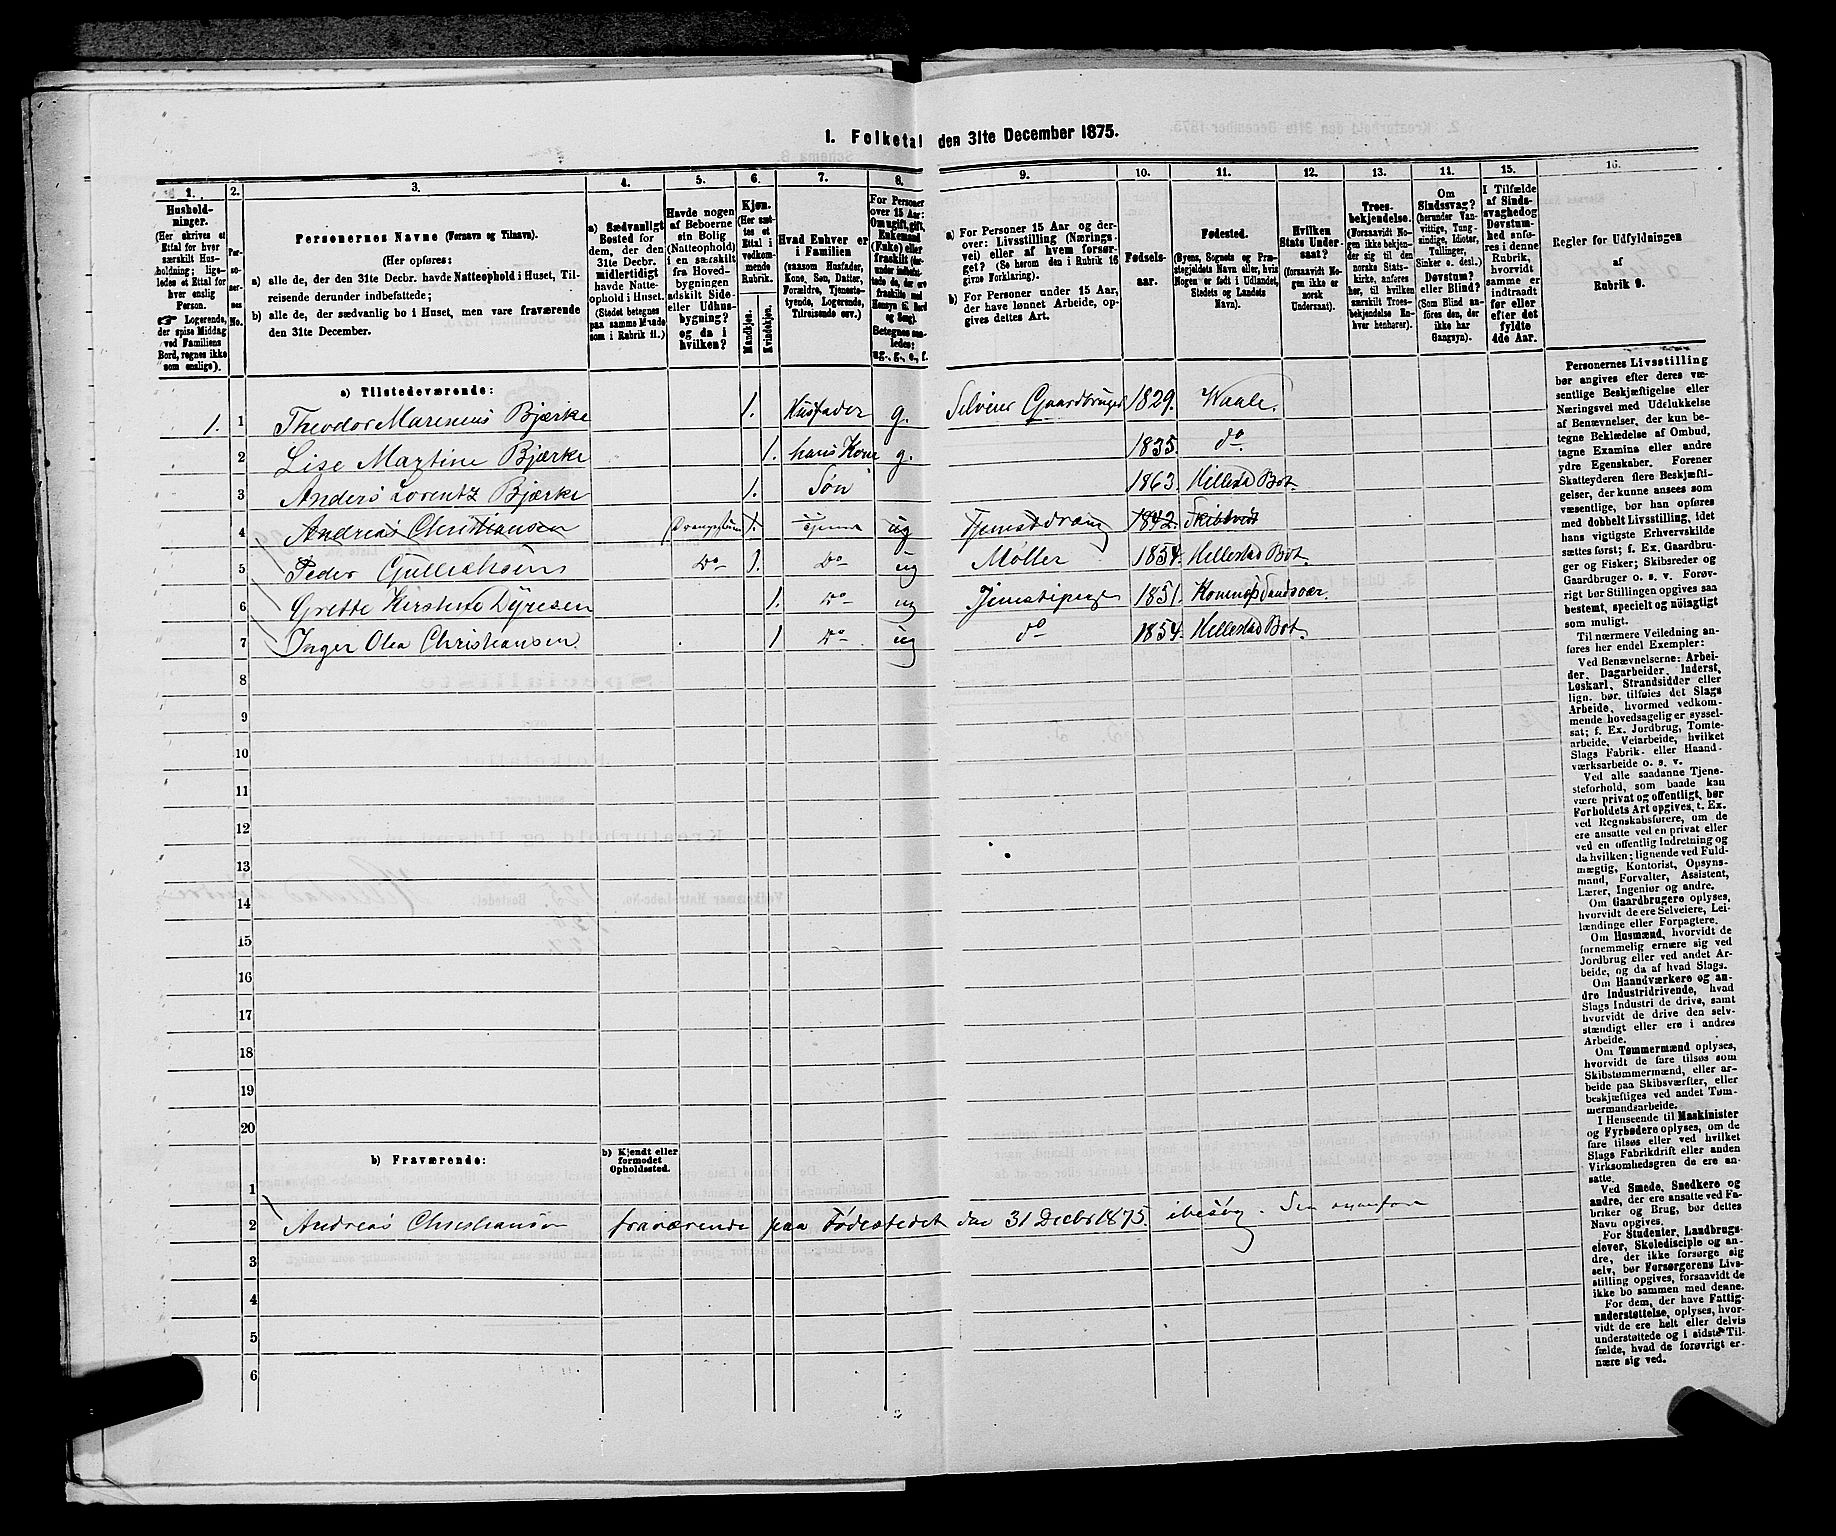 1. Folketal den 31te December 1875.
1. 2. 3. 4. 5. 6. 7. 8. 9. 10. 11. 12. 13. 11. 15. 16.
Hushold-
ninger.
(Her skrives et
Ettal for hver
særskilt Hus-
holdning; lige-
ledes et Ettal for
hver enslig
Person.
☞ Logerende,
der spise Middag
ved Familiens
Bord, regnes ikke
som enslige).
Per-
so-
ner-
nes
No.
Personernes Navne (Fornavn og Tilnavn).
(Her opføres:
a) alle de, der den 31te Decbr. havde Natteophold i Huset, Til-
reisende derunder indbefattede;
b) alle de, der sædvanlig bo i Huset, men vare fraværende
den 31te December.
a) Sædvanligt
Bosted for
dem, der den
31te Decbr.
midlertidigt
havde Natte-
ophold i Huset.
(Stedet betegnes
paa samme Maade
som i Rubrik 11.)
Havde nogen
af Beboerne
sin Bolig
(Natteophold)
i en særskilt
fra Hoved-
bygningen
adskilt Side-
eller Udhus-
bygning?
og da i
hvilken?
Kjøn.
(Her sæt-
tes et
Ettal i
vedkom-
mende
Rubrik.
Mandkjøn.
Kvindekjøn.
Hvad Enhver er
i Familien
(saasom Husfader,
Kone, Søn, Datter,
Forældre, Tjeneste-
tyende, Logerende,
Tilreisende osv.)
For Personer
over 15 Aar:
Om ugift, gift,
Enkemand
(Enke) eller
fraskilt
Betegnes saa-
ledes:
ug., g., e., f.
a) For Personer 15 Aar og der-
over: Livsstilling (Nærings-
vei) eller af hvem forsør-
get? (Se herom den i Rubrik 16
givne Forklaring).
b) For Personer under 15 Aar,
der have lønnet Arbeide, op-
gives dettes Art.
Fødsels-
aar.
Fødested.
(Byens, Sognets og Præ-
stegjeldets Navn eller, hvis
Nogen er født i Udlandet,
Stedets og Landets
Navn).
Hvilken
Stats Under-
saat?
(forsaavidt No-
gen ikke er
norsk
Undersaat).
Troes-
bekjendelse.
(Forsaavidt No-
gen ikke bekjen-
der sig til den
norske Stats-
kirke, anføres
her, til hvilken
særskilt Troes-
bekjendelse En-
hver henhører).
Om
Sindssvag?
(herunder Van-
vittige, Tung-
sindige, Idioter,
Tullinger,
Sinker o. desl.)
Døvstum?
eller Blind?
(Som Blind an-
føres den, der
ikke har
Gangsyn).
I Tilfælde
af Sinds-
svaghed og
Døvstum-
hed anfø-
res i denne
Rubrik,
hvorvidt
samme er
indtraadt
før eller
efter det
fyldte
4de Aar.
Regler for Udfyldningen
af
Rubrik 9.
a) Tilstedeværende:
1. 1 Theodor Marenius Bjærke 1. Husfader g. Selveier Gaardbruger 1829. Waale.
2 Lise Martine Bjærke 1. hans Kone g. 1835. do
3 Anders Lorentz Bjærke 1. Søn 1863. Hillestad Bot.
4 Andreas Christiansen 1. ug 1842. Skibtvedt
5 Peder Gullichsens Do 1. Do ug Møller 1854. Hellestad Bot.
6 Grette Kirstine Dyresen 1. Do ug 1851. Komnes Sandsvær.
7 Inger Olea Christiansen. 1 Do ug do 1854. Hellestad Bot.
8
9
10
11
12
13
14
15
16
17
18
19
20
b) Fraværende:
b) Kjendt eller
formodet
Opholdssted.
1
2 Andreas Christiansen fraværende paa Fødestedet den 31 Decbr 1875. ibesøg. Sen ovenfor
3
4
5
6
Personernes Livsstilling
bør angives efter deres væ-
sentlige Beskjæftigelse eller
Næringsvei med Udelukkelse
af Benævnelser, der kun be-
tegne Beklædelse af Ombud,
tagne Examina eller andre
ydre Egenskaber. Forener
Skatteyderen flere Beskjæfti-
gelser, der kunne ansees som
væsentlige, bør han opføres
med dobbelt Livsstilling, idet
hans vigtigste Erhvervskilde
sættes først; f. Ex. Gaardbru-
ger og Fisker; Skibsreder og
Gaardbruger o. s. v. Forøv-
rigt bør Stillingen opgives saa
bestemt, specielt og nøiagtigt
som muligt.
Til nærmere Veiledning an-
føres her endel Exempler:
Ved Benævnelserne: Arbei-
der, Dagarbeider, Inderst,
Løskarl, Strandsidder eller
lign. bør tilføies det Slags
Arbeide, hvormed vedkom-
mende hovedsagelig er syssel-
sat; f. Ex. Jordbrug, Tomte-
arbeide, Veiarbeide, hvilket
Slags Fabrik- eller Haand-
værksarbeide o. s. v.
Ved alle saadanne Tjene-
steforhold, som baade kan
være privat og offentligt, bør
Forholdets Art opgives, t. Ex.
ved Regnskabsførere, om de
ere ansatte ved en privat eller
ved en offentlig Indretning og
da hvilken; lignende ved Fuld-
mægtig, Kontorist, Opsyns-
mand, Forvalter, Assistent,
Lærer, Ingeniør og andre.
Om Gaardbrugere oplyses,
hvorvidt de ere Selveiere, Lei-
lændinge eller Forpagtere.
Om Husmænd, hvorvidt de
fornemmelig ernære sig ved
Jordbrug eller ved andet Ar-
beide, og da af hvad Slags.
Om Haandværkere og an-
dre Industridrivende, hvad
Slags Industri de drive, samt
hvorvidt de drive den selv-
stændigt eller ere i andres
Arbeide.
Om Tømmermænd oplyses,
hvorvidt de fare tilsøs som
Skibstømmermænd, eller ar-
beide paa Skibsværfter, eller
beskjæftiges ved andet Tøm-
mermandsarbeide.
I Henseende til Maskinister
og Fyrbødere oplyses, om de
fare tilsøs eller ved hvilket
Slags Fabrikdrift eller anden
Virksomhedsgren de ere an-
satte.
Ved Smede, Snedkere og
andre, der ere ansatte ved Fa-
briker og Brug, bør dettes
Navn opgives.
For Studenter, Landbrugs-
elever, Skoledisciple og an-
dre, der ikke forsørge sig
selv, bør Forsørgerens Livs-
stilling opgives, forsaavidt de
ikke bo sammen med denne.
For dem, der have Fattig-
understøttelse, oplyses, hvor-
vidt de ere helt eller delvis
understøttede og i sidste Til-
fælde, hvad de forøvrigt er-
nære sig ved.